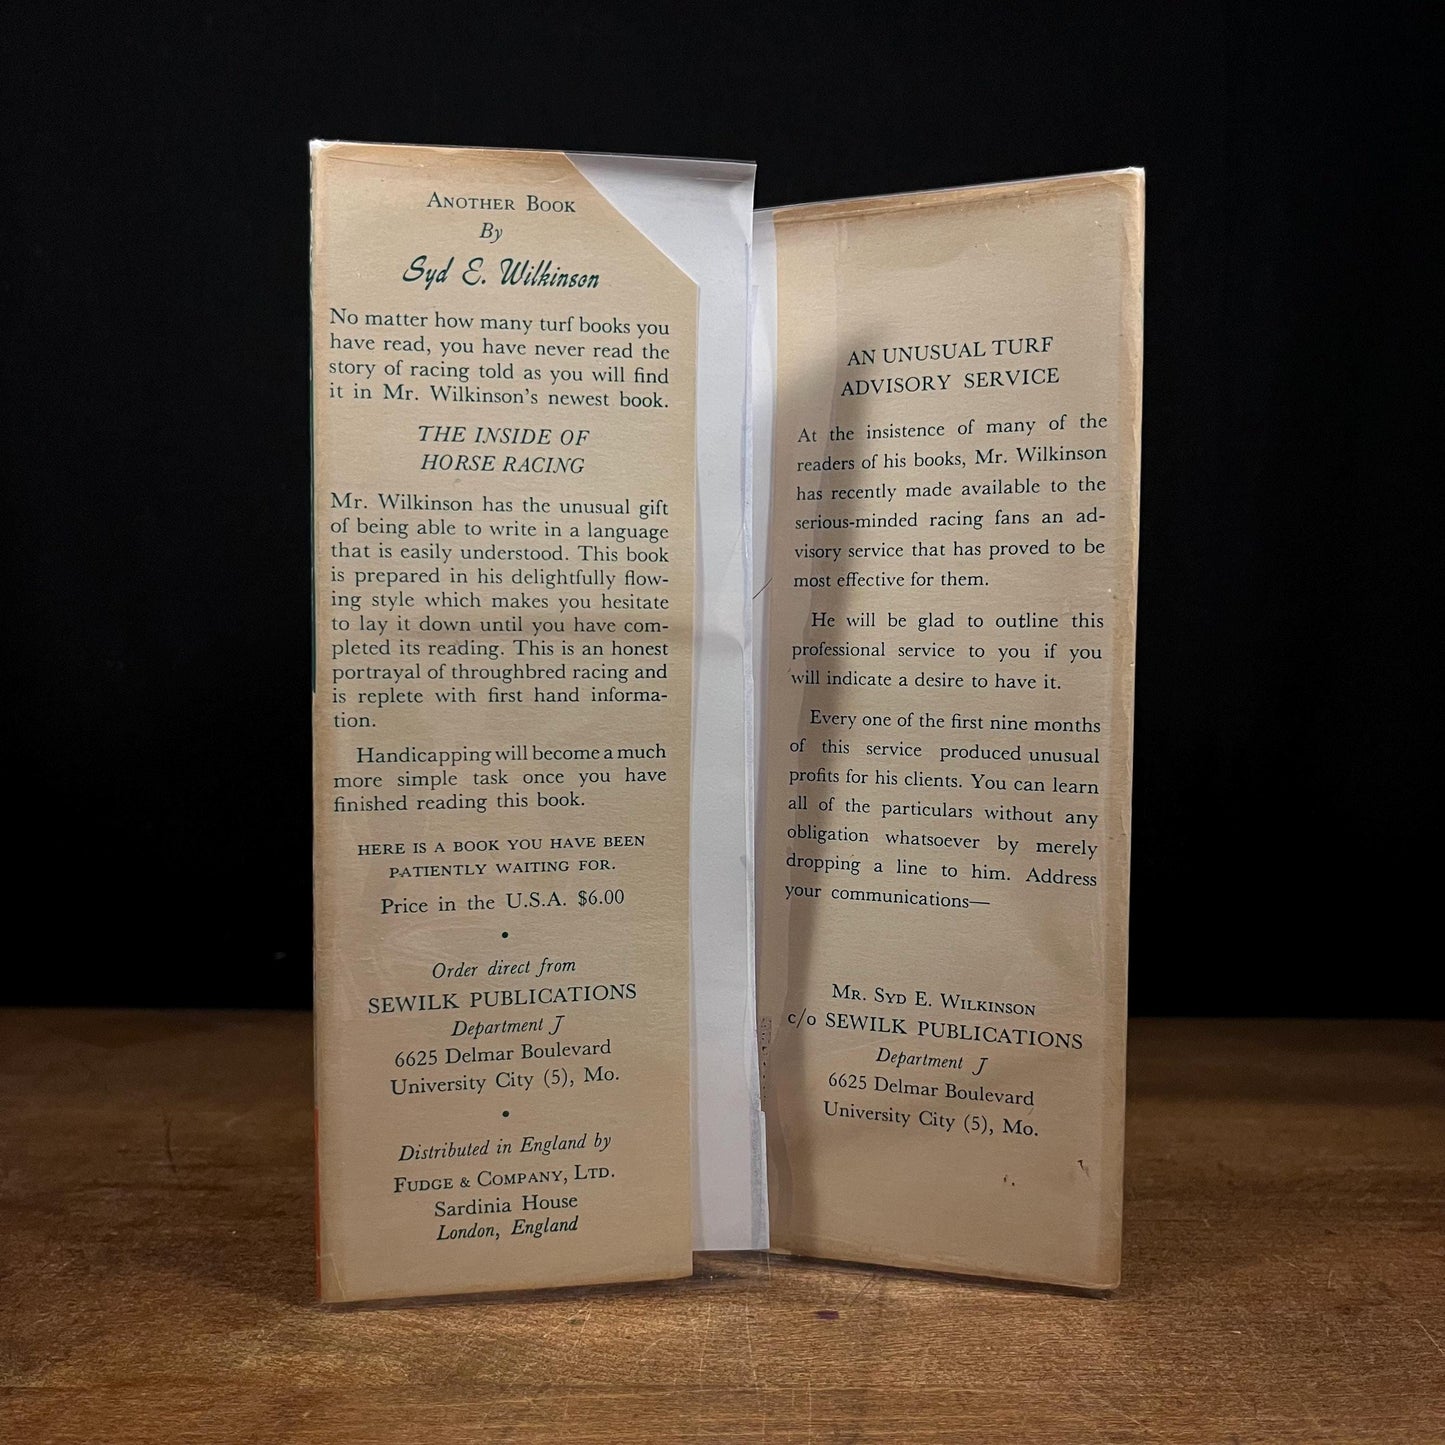 ANOTHER BOOK
By
Syd E. Wilkinson
No matter how many turf books you
have read, you have never read the
story of racing told as you will find
it in Mr. Wilkinson's newest book.
THE INSIDE OF
HORSE RACING
Mr. Wilkinson has the unusual gift
of being able to write in a language
that is easily understood. This book
is prepared in his delightfully flow-
ing style which makes you hesitate
to lay it down until you have com-
pleted its reading. This is an honest
portrayal of throughbred racing and
is replete with first hand informa-
tion.
Handicapping will become a much
more simple task once you have
finished reading this book.
HERE IS A BOOK YOU HAVE BEEN
PATIENTLY WAITING FOR.
Price in the U.S.A. $6.00
•
Order direct from
SEWILK PUBLICATIONS
Department J
6625 Delmar Boulevard
University City (5), Mo.
•
Distributed in England by
FUDGE & COMPANY, LTD.
Sardinia House
London, England
AN UNUSUAL TURF
ADVISORY SERVICE
At the insistence of many of the
readers of his books, Mr. Wilkinson
has recently made available to the
serious-minded racing fans an ad-
visory service that has proved to be
most effective for them.
He will be glad to outline this
professional service to you if you
will indicate a desire to have it.
Every one of the first nine months
of this service produced unusual
profits for his clients. You can learn
all of the particulars without any
obligation whatsoever by merely
dropping a line to him. Address
your communications—
MR. SYD E. WILKINSON
c/o SEWILK PUBLICATIONS
Department J
6625 Delmar Boulevard
University City (5), Mo.